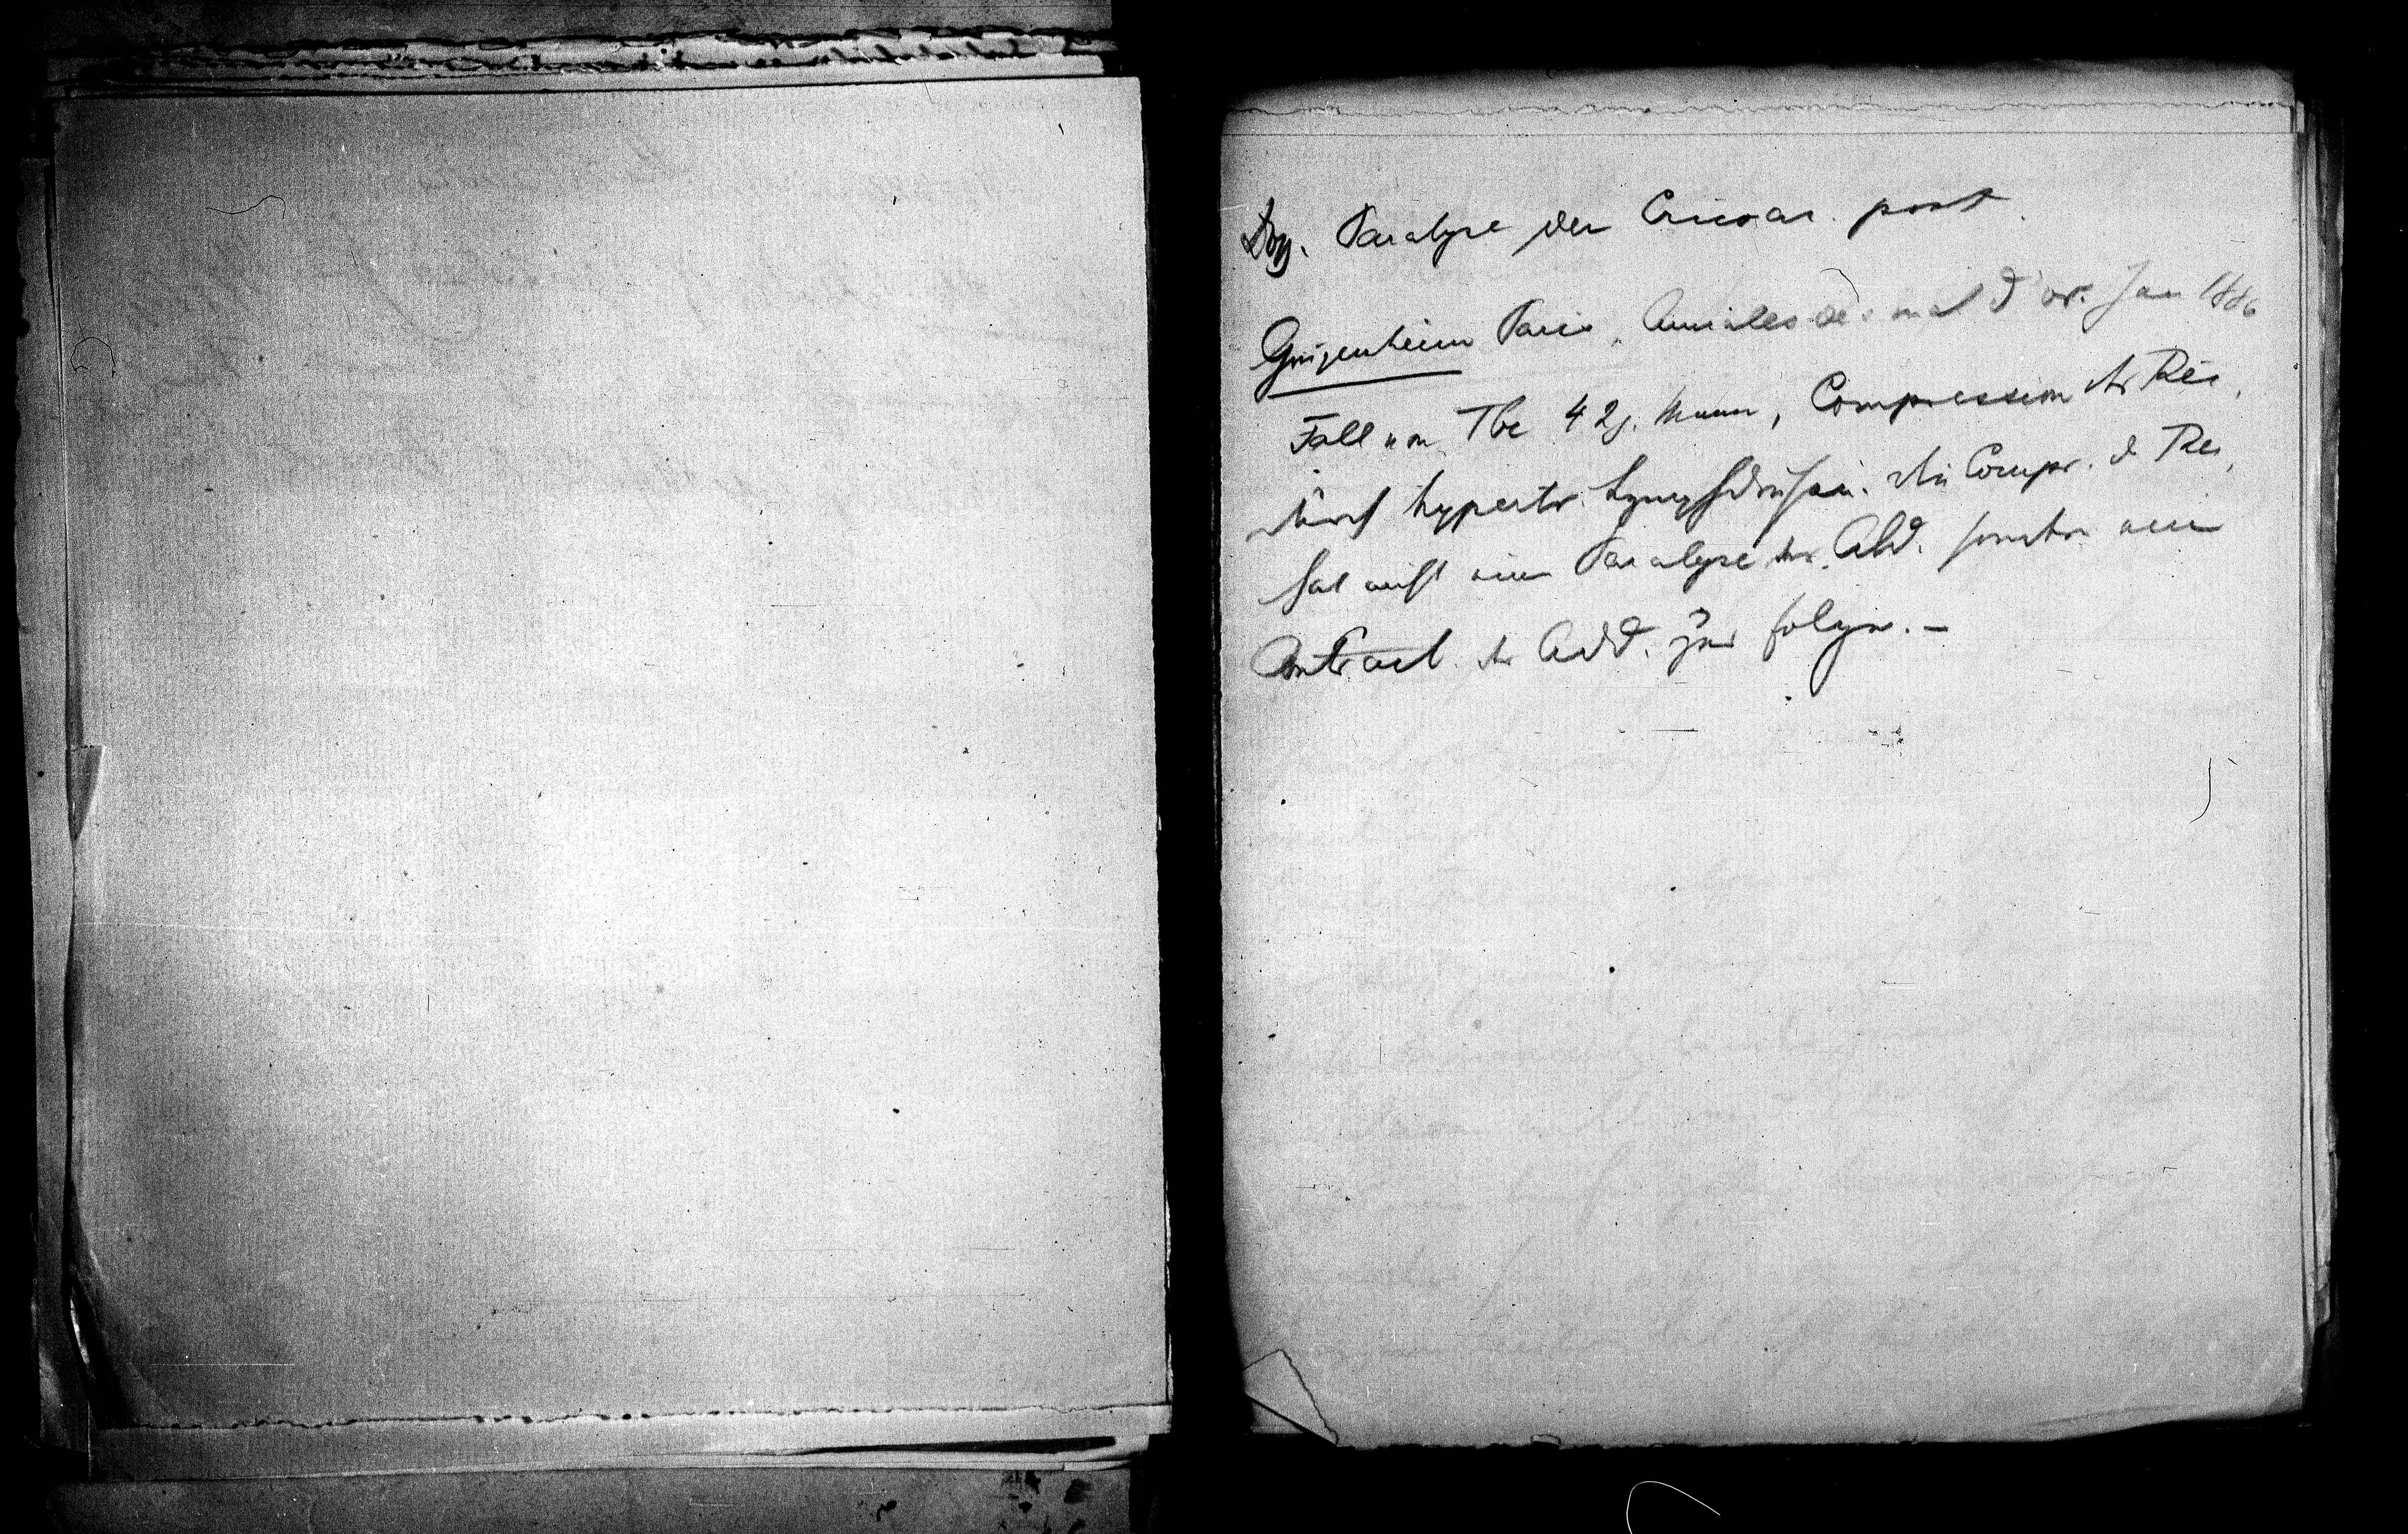 Paralyse der Cricoar. post.
Gougenheim Paris, Annales des mal d or. Jan 1886
Fall von Tbc 42j. Mann, Compression der Rec,
durch hypertr. Lymphdrüsen. Die Compr. d Rec,
hat nicht eine Paralyse der Abd. sondern eine
Contract. der Add. zur Folge. –